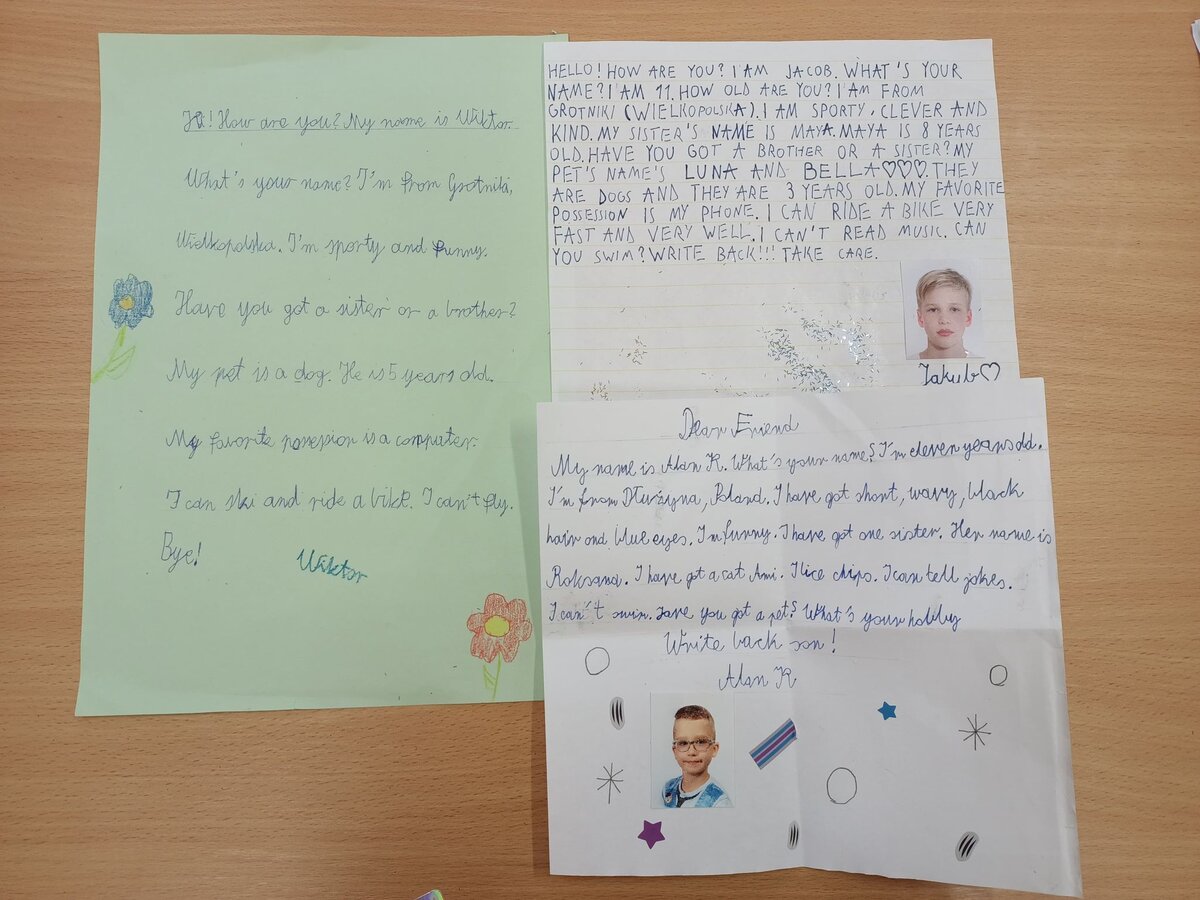 Hi! How are you? My name is Wiktor.
What's your name? I'm from Grotniki,
Wielkopolska. I'm sporty and funny.
Have you got a sister or a brother?
My pet is a dog. He is 5 years old.
My favorite possession is a computer.
I can ski and ride a bike. I can't fly.
Bye!
Wiktor
HELLO! HOW ARE YOU? I'AM JACOB. WHAT'S YOUR
NAME? I'AM 11. HOW OLD ARE YOU? I'AM FROM
GROTNIKI (WIELKOPOLSKA). I AM SPORTY, CLEVER AND
KIND. MY SISTER'S NAME IS MAYA. MAYA IS 8 YEARS
OLD. HAVE YOU GOT A BROTHER OR A SISTER? MY
PET'S NAME'S LUNA AND BELLA♡♡♡. THEY
ARE DOGS AND THEY ARE 3 YEARS OLD. MY FAVORITE
POSSESSION IS MY PHONE. I CAN RIDE A BIKE VERY
FAST AND VERY WELL. I CAN'T READ MUSIC. CAN
YOU SWIM? WRITE BACK!!! TAKE CARE.
Jakub♡
Dear Friend
My name is Alan K. What's your name? I'm eleven years old.
I'm from Dłużyna, Poland. I have got short, wavy, black
hair and blue eyes. I'm funny. I have got one sister. Her name is
Roksana. I have got a cat Ami. I lice chips. I can tell jokes.
I can't swim. Have you got a pet? What's your hobby
Write back son!
Alan K